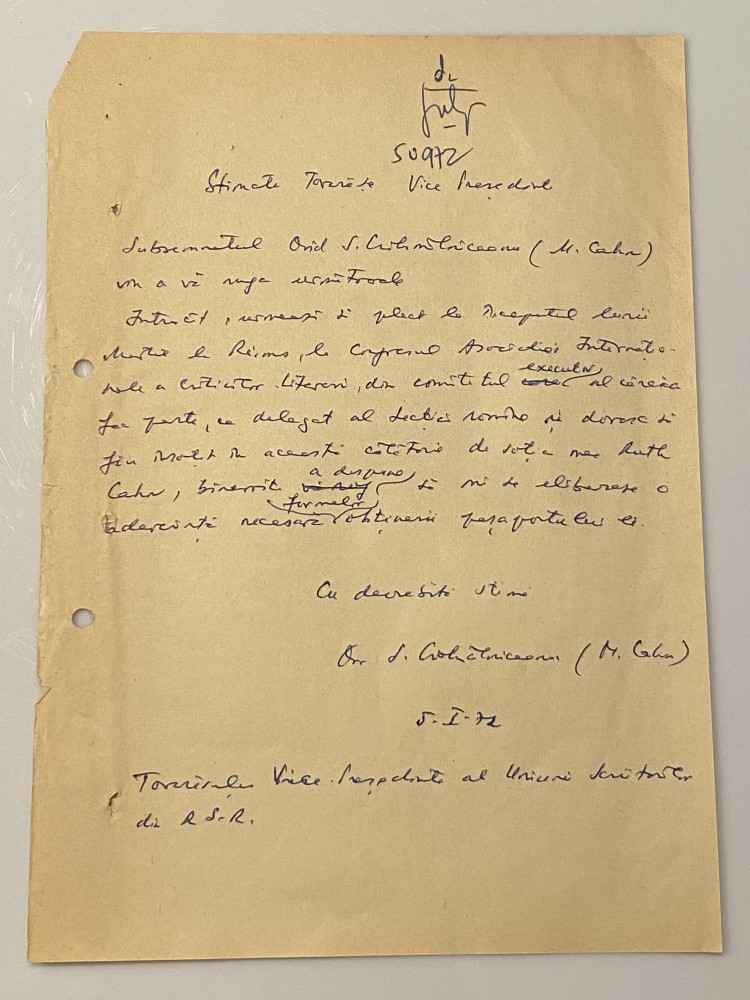 da
50972
Stimate Tovarășe Vice Președinte
Subsemnatul Ovid S. Crohmălniceanu (M. Cahn)
vin a vă ruga următoarele
Întrucît, urmează să plec la începutul lunii
Martie la Reims, la Congresul Asociației Internațio-
nale a Criticilor Literari, din comitetul executiv al căreia
fac parte, ca delegat al secției române și doresc să
fiu însoțit în această călătorie de soția mea Ruth
Cahn, binevoiți a dispune să mi se elibereze o
adeverință necesară formelor obținerii pașaportului ei.
Cu deosebită stimă
Ov. S. Crohmălniceanu (M. Cahn)
5-I-72
Tovarășului Vice-Președinte al Uniunii Scriitorilor
din R.S.R.